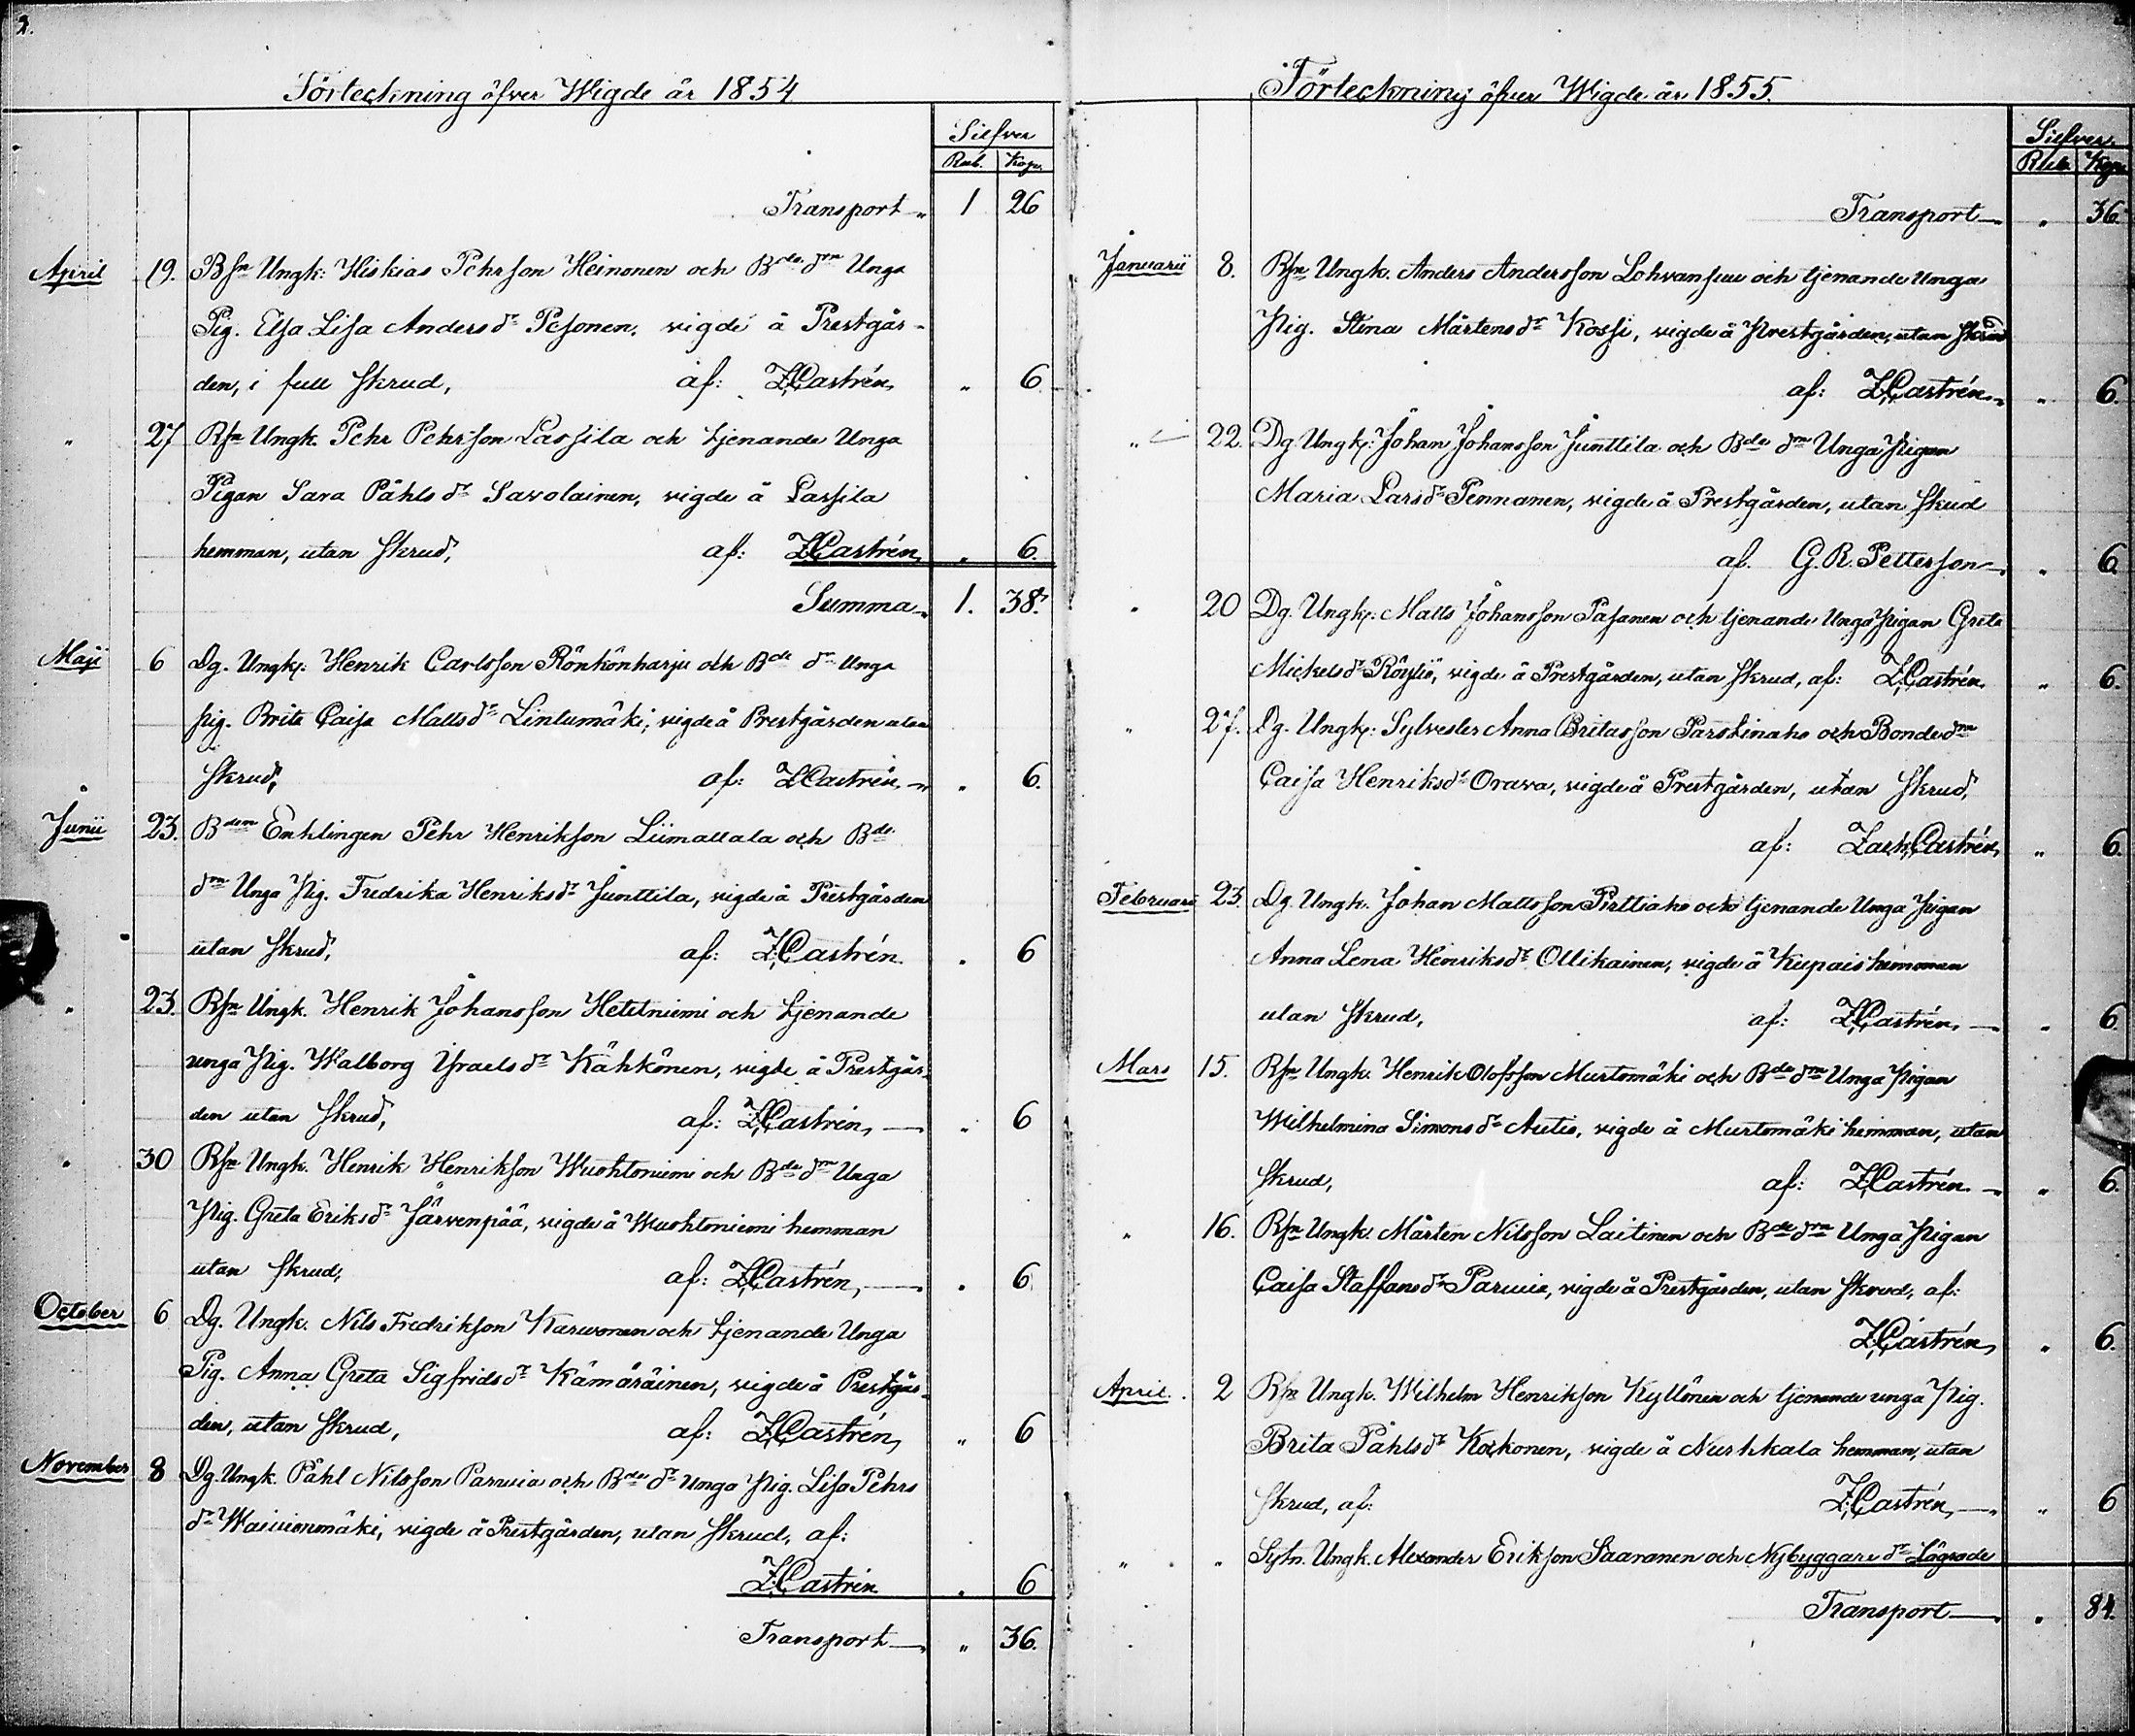 2.
Förteckning öfver Wigde år 1854
Silfver
Rub. Kop.
Transport „ 1 26
April 19. Bsn Ungk: Hiskias Pehrson Heinonen och Bde dm Unga
Pig. Elsa Lisa Andersdr Pesonen, vigde å Prestgår-
den, i full skrud, af: Z.Castrén, „ 6
„ 27 Bsn Ungk. Pehr Pehrsson Lassila och tjenande Unga
Pigan Sara Påhlsdr Savolainen, vigde å Lassila
hemman, utan skrud, af: Z.Castrén, „ 6.
Summa „ 1. 38.
Maji 6 Dg. Ungk: Henrik Carlsson Rönkönharju och Bde dr Unga
pig. Brita Caisa Mattsdr Lintumäki, vigde å Prestgården utan
skrud, af: Z.Castrén, „ 6.
Junii 23. Bden Enklingen Pehr Henrikson Liimattala och Bde
dm Unga Pig. Fredrika Henriksdr Junttila, vigde å Prestgården
utan skrud, af: Z.Castrén. „ 6
„ 23. Bsn Ungk. Henrik Johansson Heteniemi och tjenande
unga Pig. Walborg Israelsdr Kähkönen, vigde å Prestgår-
den utan skrud, af: Z.Castrén, „ 6
„ 30 Bsn Ungk. Henrik Henrikson Wuohtoniemi och Bde dm Unga
Pig. Greta Eriksdr Järvenpää, vigde å Wuohtoniemi hemman
utan skrud, af: Z.Castrén, „ 6
October 6 Dg. Ungk. Nils Fredrikson Karvonen och tjenande Unga
Pig. Anna Greta Sigfridsdr Kämäräinen, vigde å Prestgår-
den, utan skrud, af: Z.Castrén, „ 6
November 8 Dg. Ungk. Påhl Nilsson Parvia och Bde dr unga Pig. Lisa Pehrs
dr Wainionmäki, vigde å Prestgården, utan skrud, af:
Z.Castrén „ 6
Transport „ 36.
Förteckning öfver Wigde år 1855.
Silfver.
Rub. Kop.
Transport „ 36.
Januarii 8. Bsn Ungk. Anders Andersson Lohvansuu och tjenande Unga
Pig. Stina Mårtensdr Kossi, vigde å Prestgården, utan skrud
af: Z.Castrén „ 6.
„ 22. Dg. Ungk: Johan Johansson Junttila och Bde dm Unga Pigan
Maria Larsdr Pennanen, vigde å Prestgården, utan skrud
af. G.R. Petterson „ 6.
„ 20 Dg. Ungk: Matts Johansson Pasanen och tjenande Unga Pigan Greta
Mickelsdr Röyliö, vigde å Prestgården, utan skrud, af: Z.Castrén. „ 6.
„ 27. Dg. Ungk: Sylvester Anna Britasson Parstinaho och Bonde dm
Caisa Henriksdr Orava, vigde å Prestgården, utan skrud,
af: Zach.Castrén, „ 6.
Februarii 23. Dg. Ungk. Johan Mattsson Pirttiaho och tjenande Unga Pigan
Anna Lena Henriksdr Ollikainen, vigde å Kupais hemman
utan skrud, af: Z.Castrén, „ 6
Mars 15. Bsn Ungk. Henrik Olofsson Murtomäki och Bde dm Unga Pigan
Wilhelmina Simonsdr Autio, vigde å Murtomäki hemman, utan
skrud, af: Z.Castrén. „ 6.
„ 16. Bsn Ungk. Mårten Nilsson Laitinen och Bde dm Unga Pigan
Caisa Staffansdr Parvia, vigde å Prestgården, utan skrud, af:
Z.Castrén, „ 6.
April. 2 Bsn Ungk. Wilhelm Henrikson Kyllönen och tjenande unga Pig.
Brita Påhlsdr Kokkonen, vigde å Nurkkala hemman, utan
skrud, af: Z.Castrén, „ 6
„ „ Sytn. Ungk. Alexander Erikson Saaranen och Nybyggare dr Lägrade
Transport „ 84.